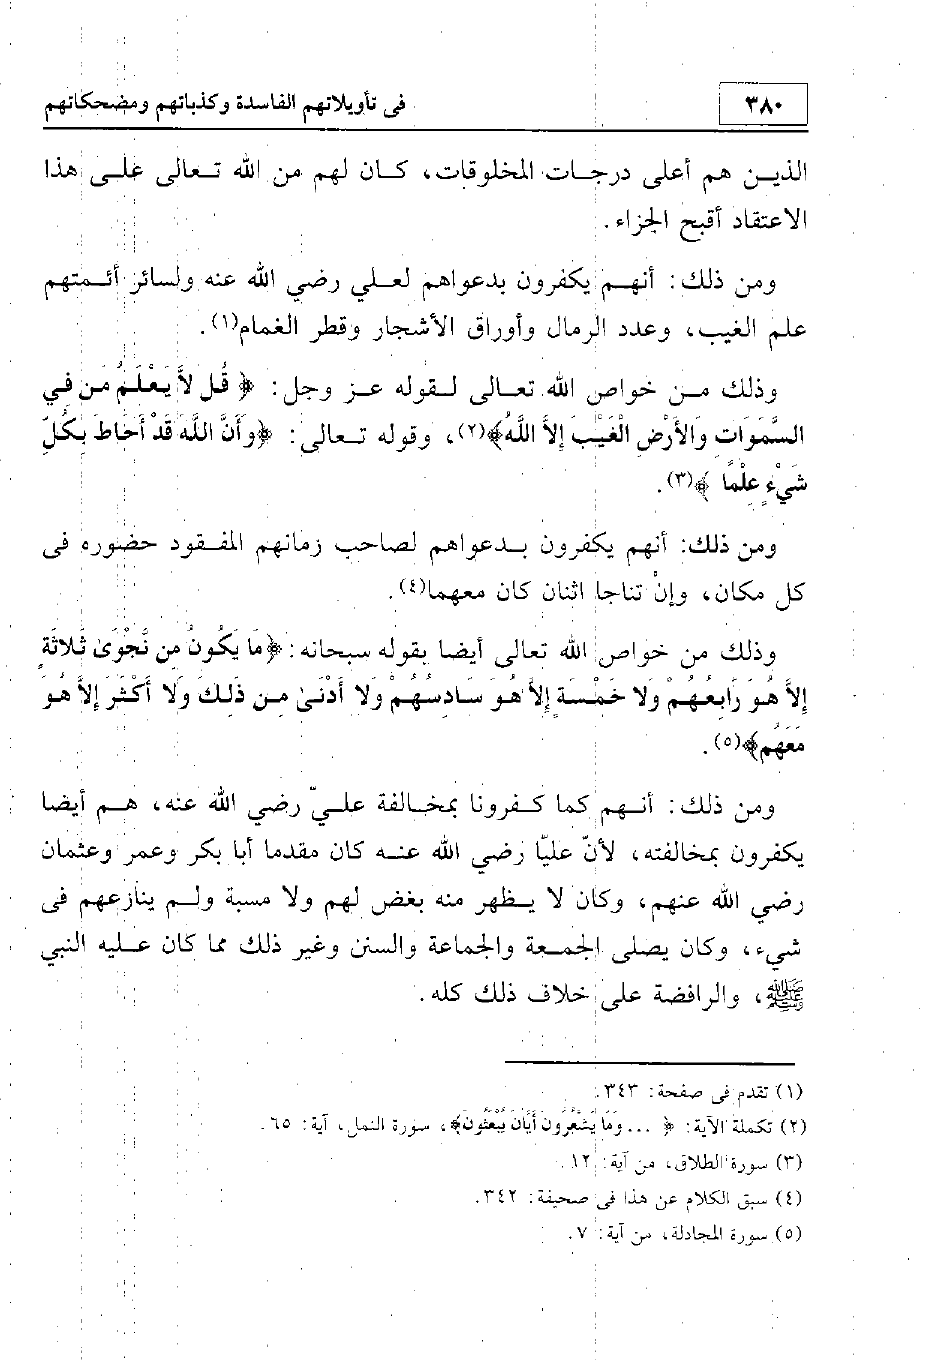 ٣٨٠
فى تأويلاتهم الفاسدة وكذباتهم ومضحكاتهم
الذين هم أعلى درجات المخلوقات، كان لهم من الله تعالى على هذا
الاعتقاد أقبح الجزاء.
ومن ذلك: أنهم يكفرون بدعواهم لعلي رضي الله عنه ولسائر أئمتهم
علم الغيب، وعدد الرمال وأوراق الأشجار وقطر الغمام(١).
وذلك من خواص الله تعالى لقوله عز وجل: ﴿ قُل لاَّ يَعْلَمُ مَن فِي
السَّمَوَات وَالأَرْضِ الْغَيْبَ إِلاَّ اللَّهُ﴾(٢)، وقوله تعالى: ﴿وأَنَّ اللَّه قَدْ أَحَاطَ بِكُلِّ
شَيْءٍ عِلْمًا ﴾(٣).
ومن ذلك: أنهم يكفرون بدعواهم لصاحب زمانهم المفقود حضوره فى
كل مكان، وإنْ تناجا اثنان كان معهما(٤).
وذلك من خواص الله تعالى أيضا بقوله سبحانه: ﴿مَا يَكُونُ مِن نَّجْوَىٰ ثَلاثَةٍ
إِلاَّ هُوَ رَابِعُهُمْ وَلا خَمْسَةٍ إِلاَّ هُوَ سَادِسُهُمْ وَلا أَدْنَىٰ مِن ذَلِكَ وَلا أَكْثَرَ إِلاَّ هُوَ
مَعَهُم﴾(٥).
ومن ذلك: أنهم كما كفرونا بمخالفة عليّ رضي الله عنه، هم أيضا
يكفرون بمخالفته، لأنّ عليّا رضي الله عنه كان مقدما أبا بكر وعمر وعثمان
رضي الله عنهم، وكان لا يظهر منه بغض لهم ولا مسبة ولم ينازعهم فى
شيء، وكان يصلى الجمعة والجماعة والسنن وغير ذلك مما كان عليه النبي
ﷺ، والرافضة على خلاف ذلك كله.
(١) تقدم فى صفحة: ٣٤٣.
(٢) تكملة الآية: ﴿ ... وَمَا يَشْعُرُونَ أَيَّانَ يُبْعَثُونَ﴾، سورة النمل، آية: ٦٥.
(٣) سورة الطلاق، من آية: ١٢.
(٤) سبق الكلام عن هذا فى صحيفة: ٣٤٢.
(٥) سورة المجادلة، من آية: ٧.